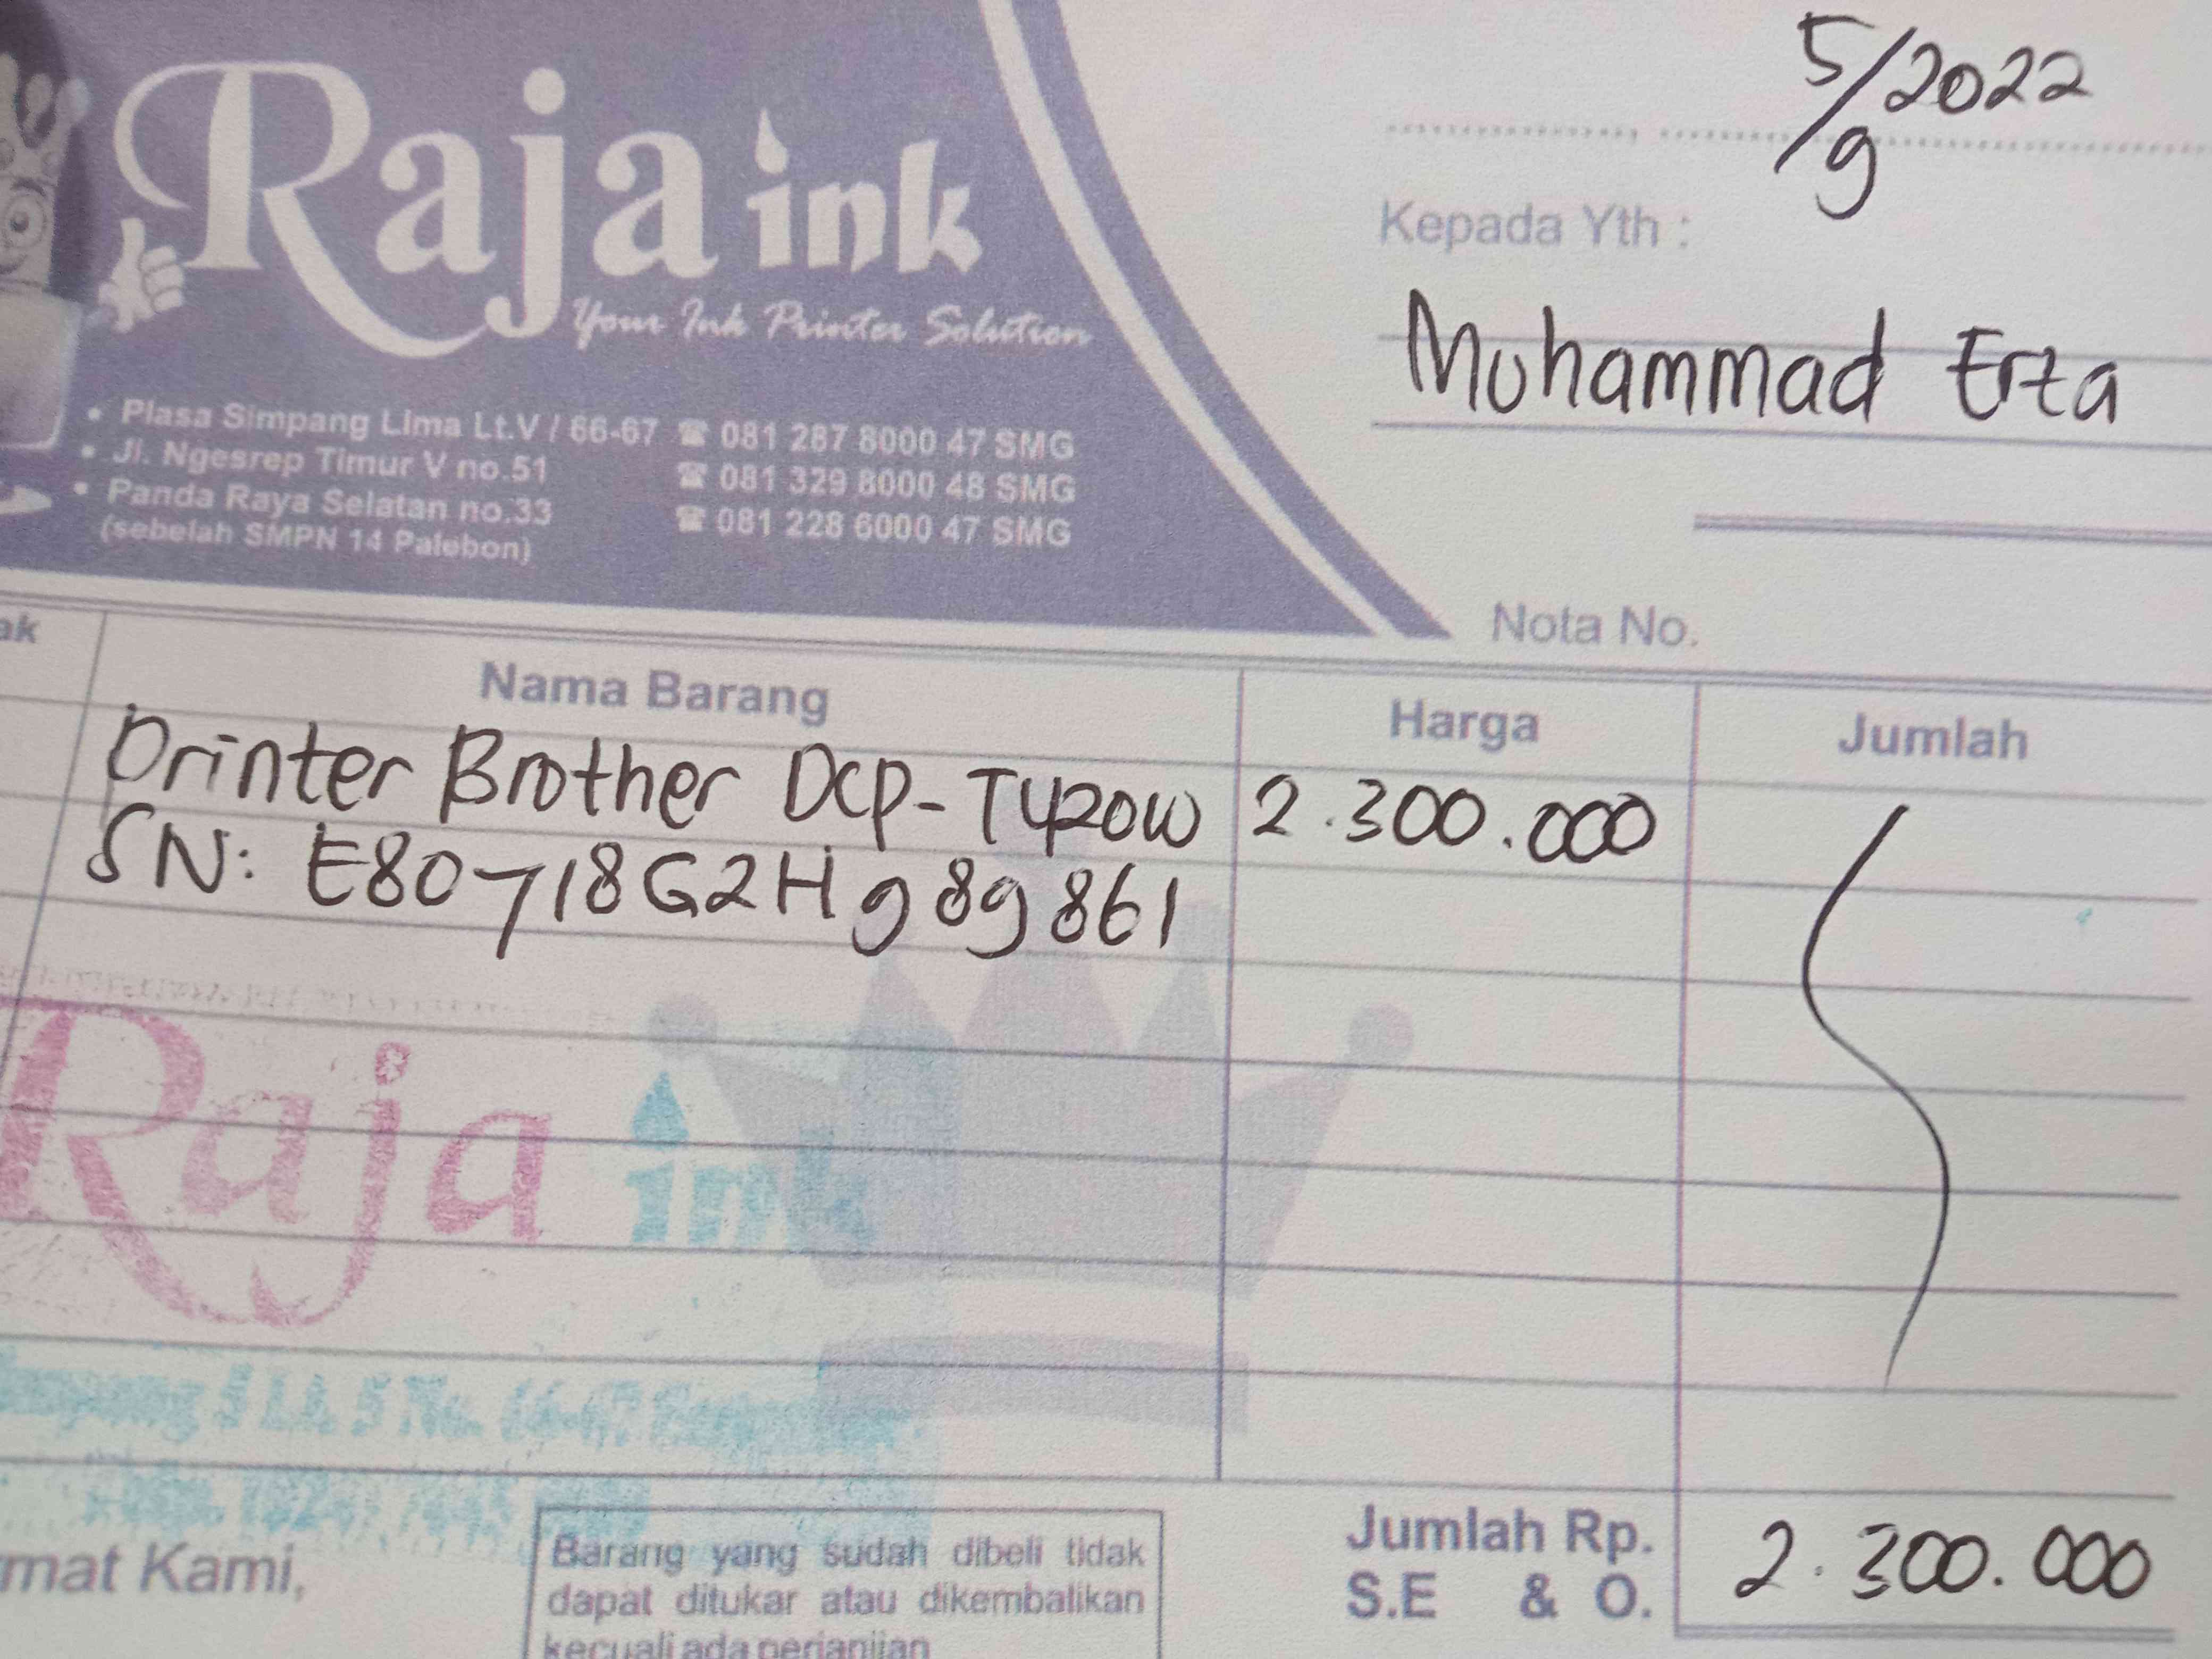 Raja ink
Your Ink Printer Solution
• Plasa Simpang Lima Lt.V / 66-67 ☎ 081 287 8000 47 SMG
• Jl. Ngesrep Timur V no.51 ☎ 081 329 8000 48 SMG
• Panda Raya Selatan no.33 ☎ 081 228 6000 47 SMG
(sebelah SMPN 14 Palebon)
5/9 2022
Kepada Yth :
Muhammad Erza
Nota No.
ak Nama Barang Harga Jumlah
Printer Brother DCP-T420W 2.300.000
SN: E80718G2H989861
Raja ink
Jumlah Rp. 2.300.000
S.E & O.
mat Kami,
Barang yang sudah dibeli tidak
dapat ditukar atau dikembalikan
kecuali ada perjanjian